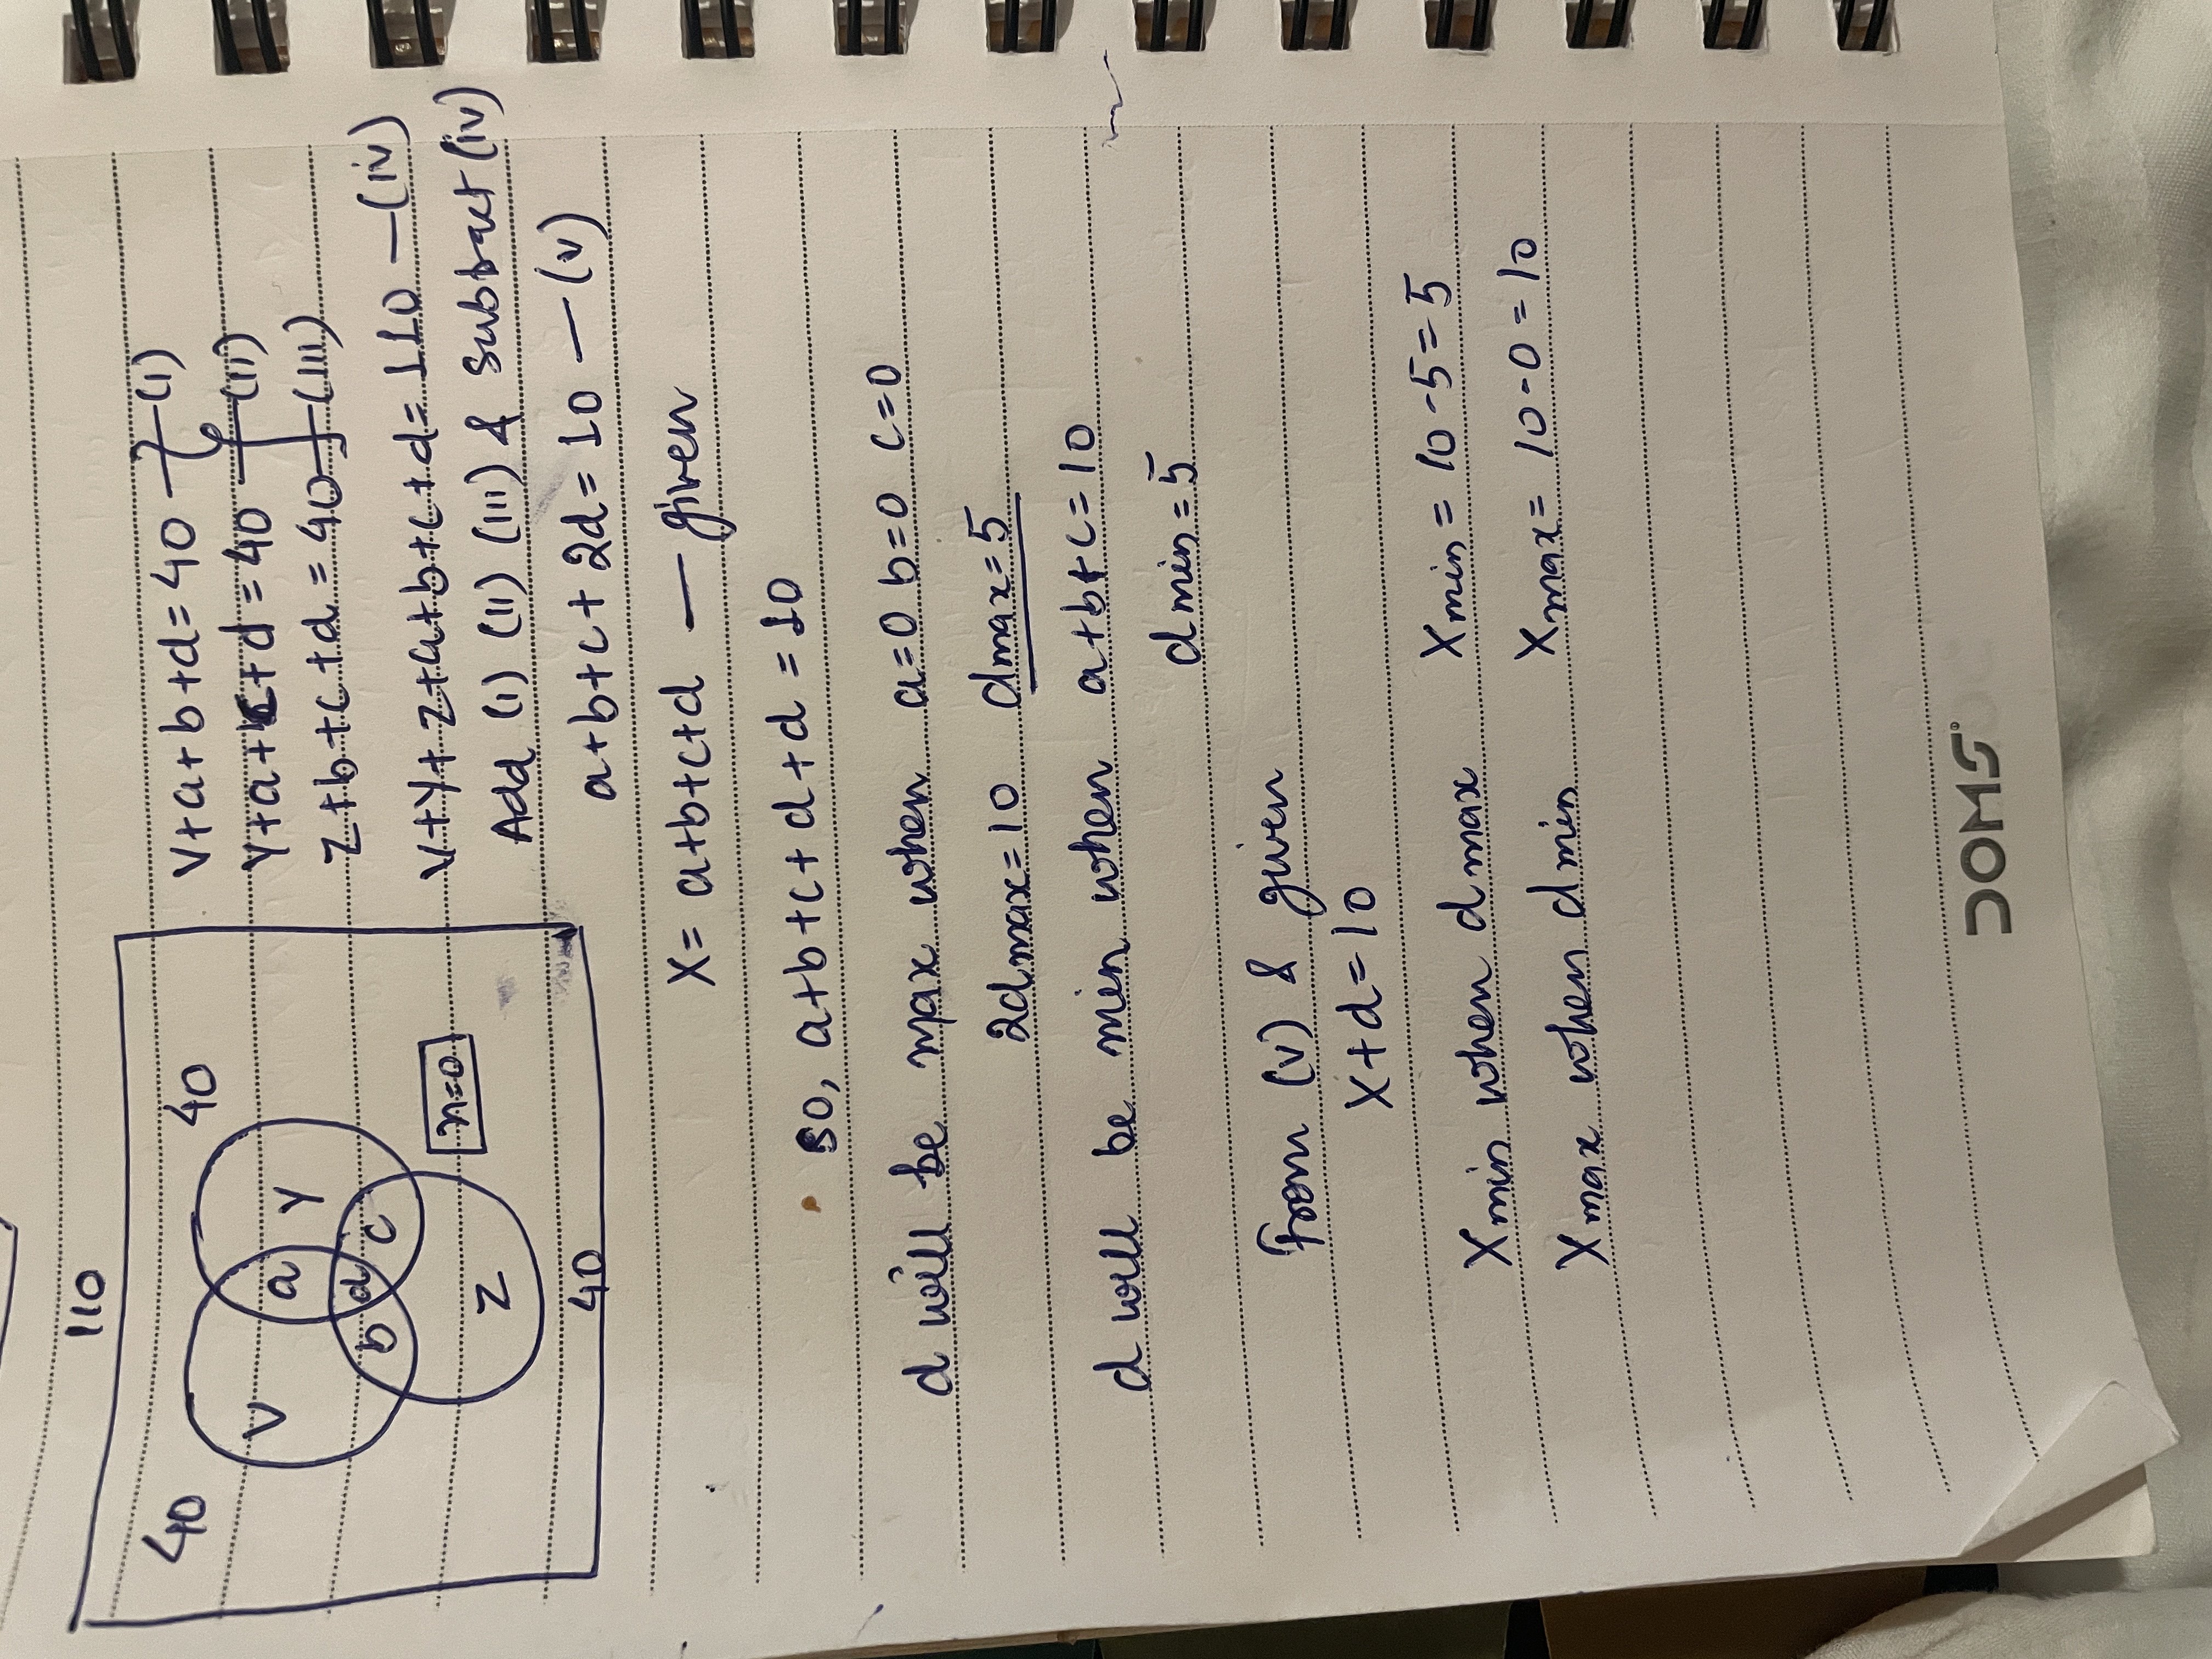 110
40
40
V
a
Y
b
d
c
Z
n=0
40
V+a+b+d=40 —(i)
Y+a+c+d=40 —(ii)
Z+b+c+d=40—(iii)
V+Y+Z+a+b+c+d=110—(iv)
Add (i) (ii) (iii) & subtract (iv)
a+b+c+2d=10 —(v)
X= a+b+c+d — given
so, a+b+c+d+d=10
d will be max when a=0 b=0 c=0
2dmax=10 dmax=5
d will be min when a+b+c=10
dmin=5
From (v) & given
X+d=10
Xmin when dmax Xmin=10-5=5
Xmax when dmin Xmax=10-0=10
DOMS